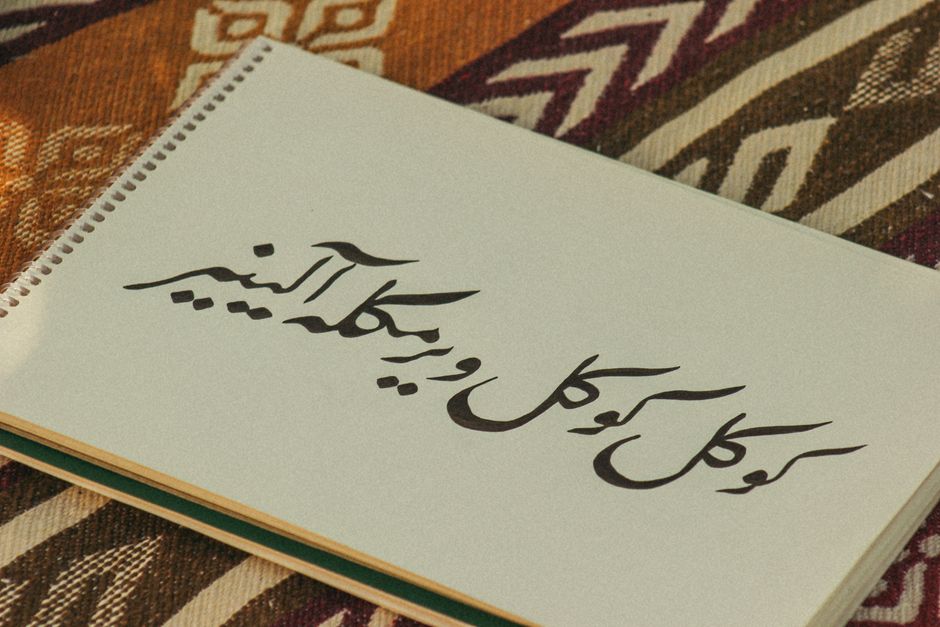 کوکل کوکل ویرمکله آلینیر